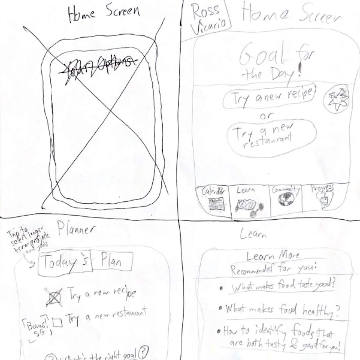 Home Screen
Ross
Vicario
Home Screen
Goal for
the Day!
Try a new recipe?
or
Try a new
restaurant
Calendar
Learn
Community
Planner
Tap to
select larger
Today's Plan
Try a new recipe
Try a new restaurant
What's the right goal?
Learn
Learn More
Recommended for you:
• What makes food taste good?
• What makes food healthy?
• How to identify foods that
are both tasty & good for you!